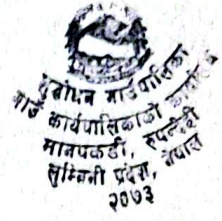 सुद्धोधन गाउँपालिका
गाउँ कार्यपालिकाको कार्यालय
मानपकडी, रुपन्देही
लुम्बिनी प्रदेश, नेपाल
२०७३